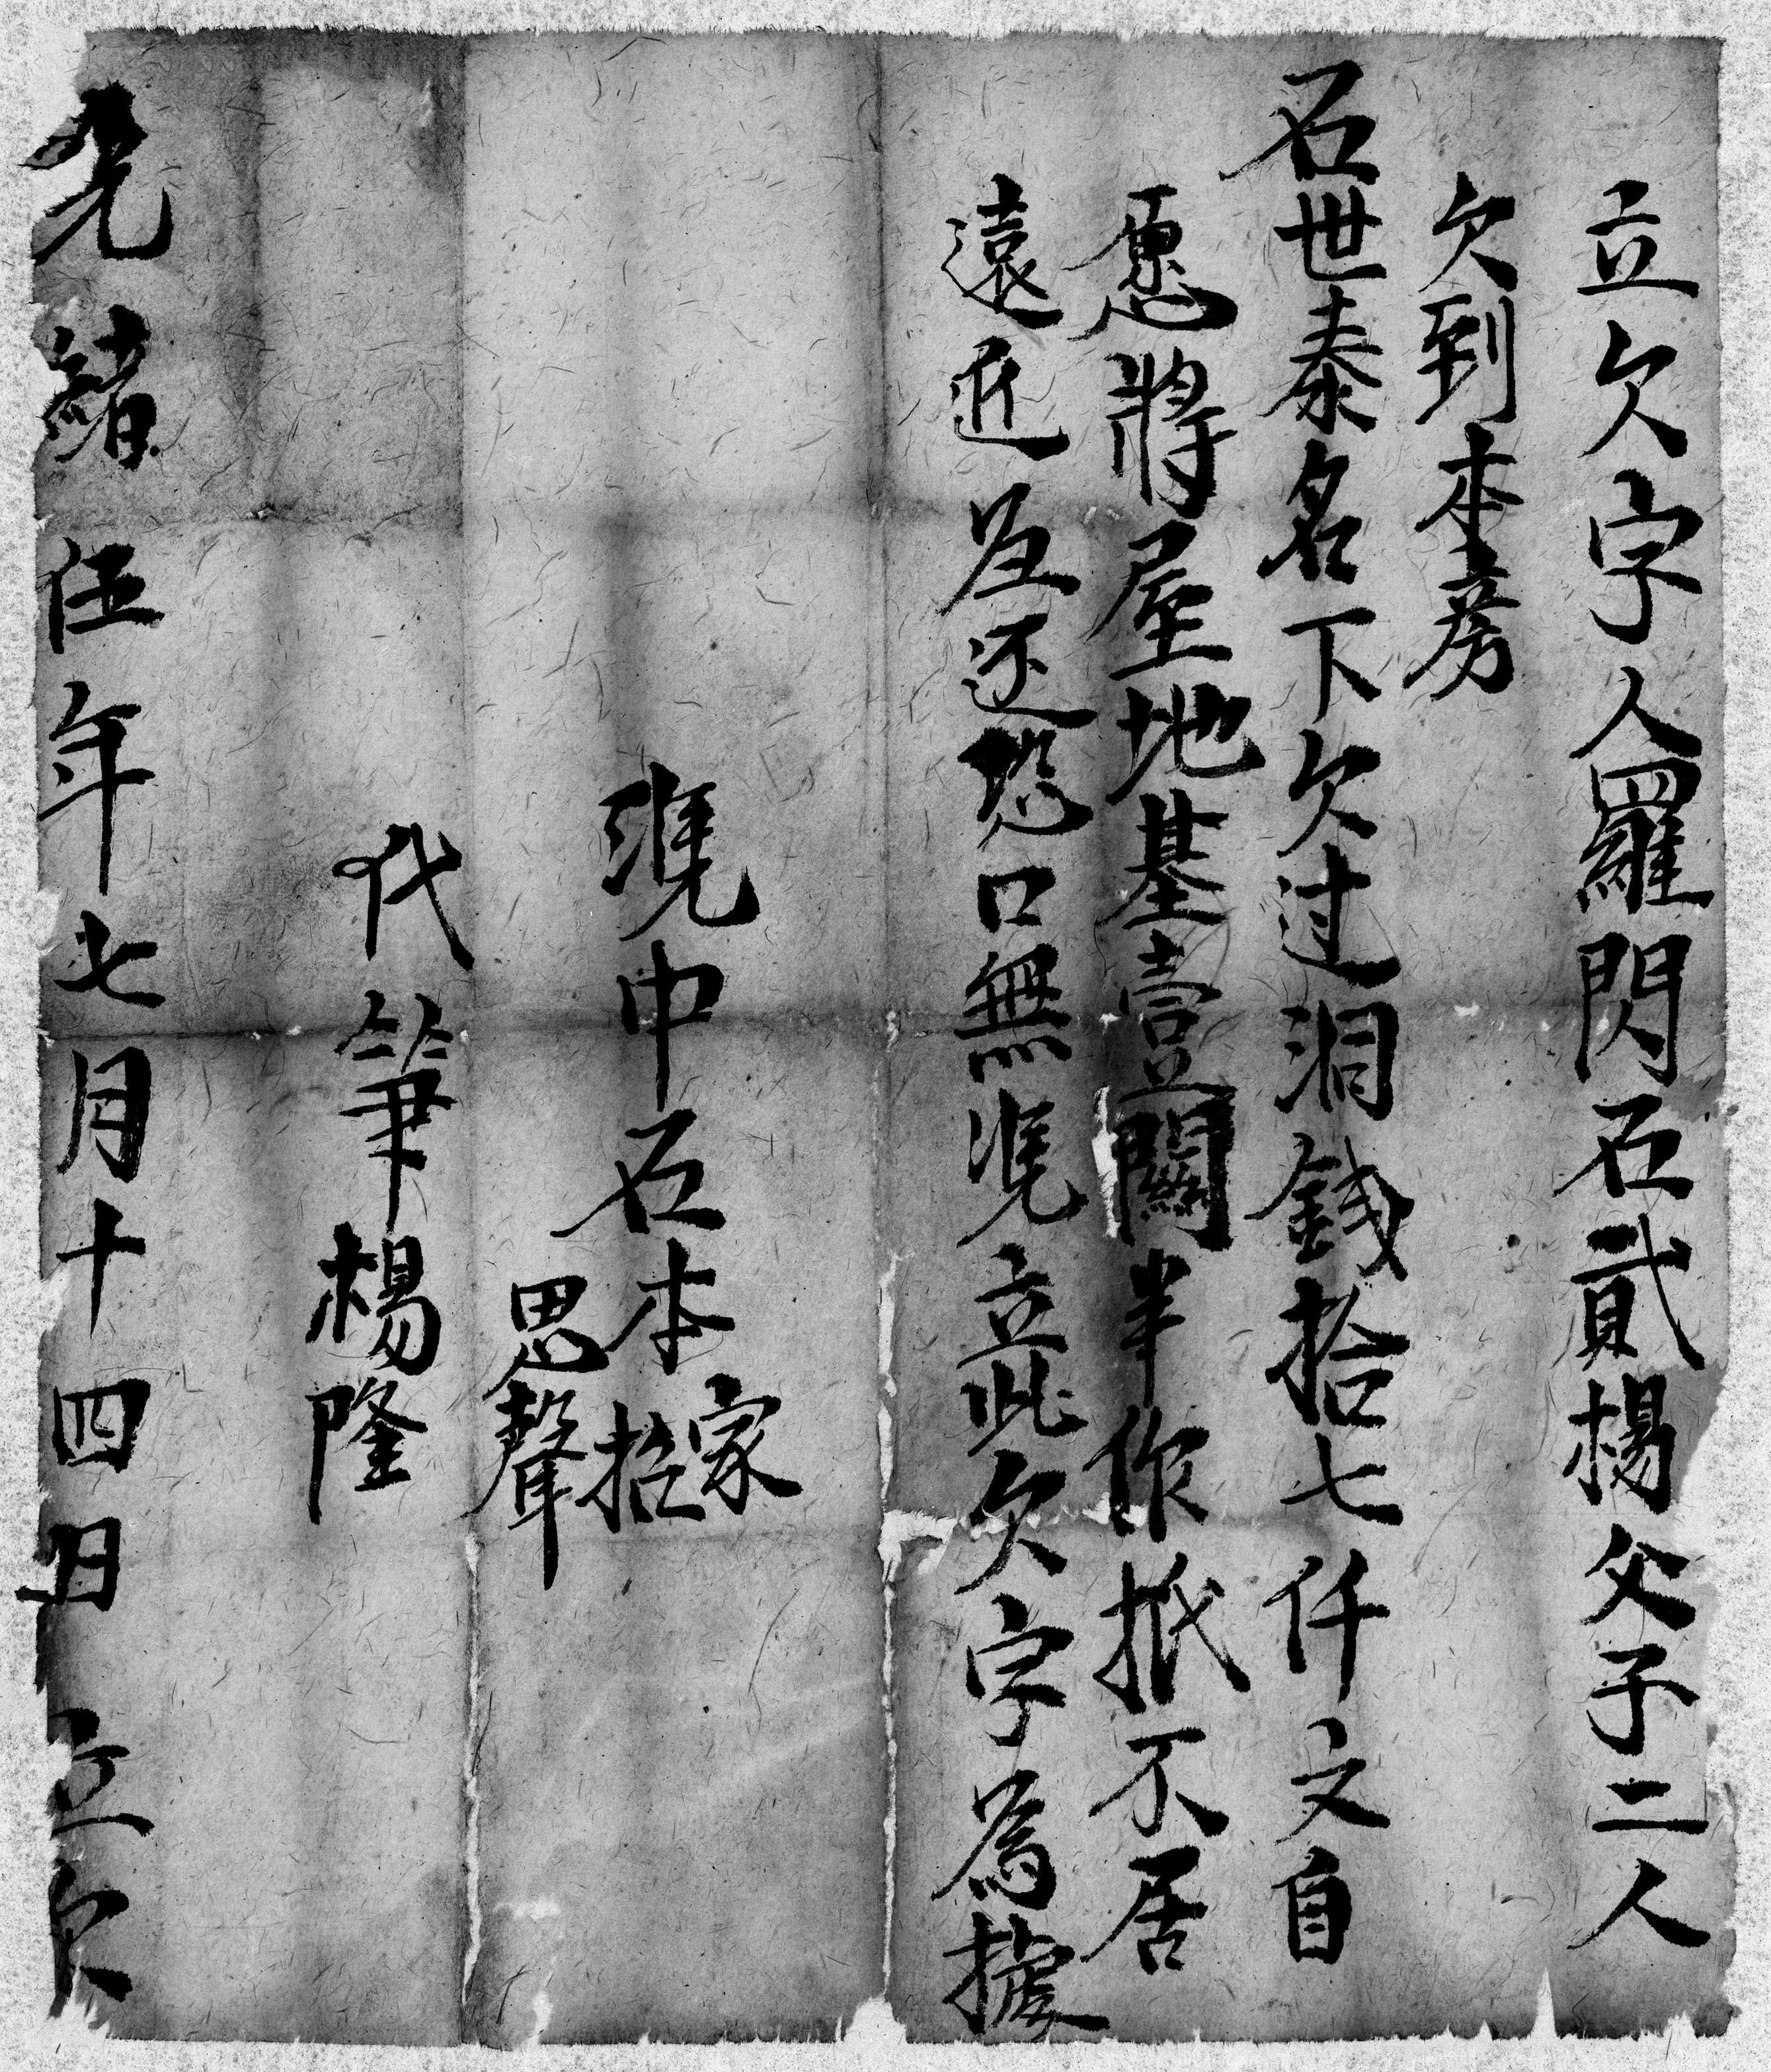 立欠字人羅閃石貳楊父子二人
欠到本房
石世泰名下欠过洞錢拾七仟文自
愿將屋地基壹間半作抵不居
遠近為还恐口無凴立此欠字為據
凴中石本家
招
思聲
代筆楊隆
光緒伍年七月十四日立欠